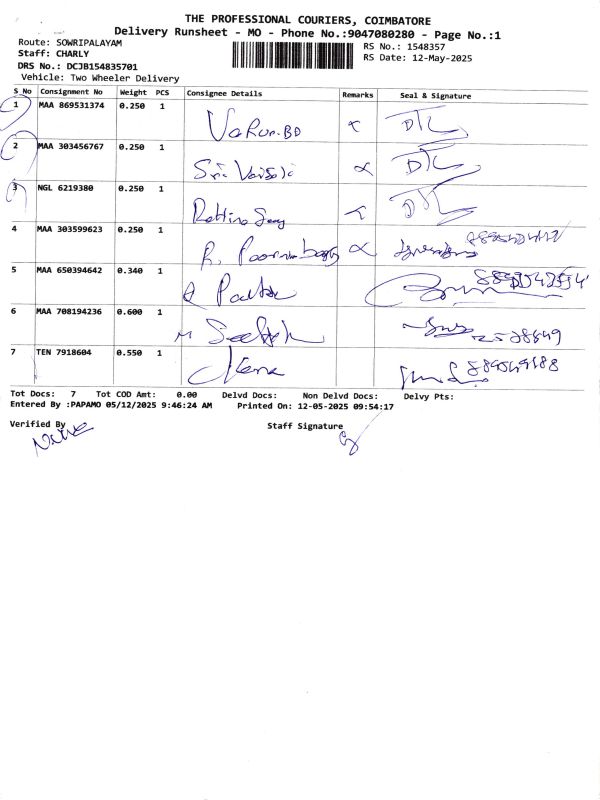 THE PROFESSIONAL COURIERS, COIMBATORE
Delivery Runsheet - MO - Phone No.:9047080280 - Page No.:1
Route: SOWRIPALAYAM
RS No.: 1548357
Staff: CHARLY
RS Date: 12-May-2025
DRS No.: DCJB154835701
Vehicle: Two Wheeler Delivery
S No Consignment No Weight PCS Consignee Details Remarks Seal & Signature
1 MAA 869531374 0.250 1 DTC
2 MAA 303456767 0.250 1 Sri DTC
3 NGL 6219380 0.250 1 DTC
4 MAA 303599623 0.250 1 R.
5 MAA 650394642 0.340 1
6 MAA 708194236 0.600 1 M
7 TEN 7918604 0.550 1
Tot Docs: 7 Tot COD Amt: 0.00 Delvd Docs: Non Delvd Docs: Delvy Pts:
Entered By :PAPAMO 05/12/2025 9:46:24 AM Printed On: 12-05-2025 09:54:17
Verified By Staff Signature